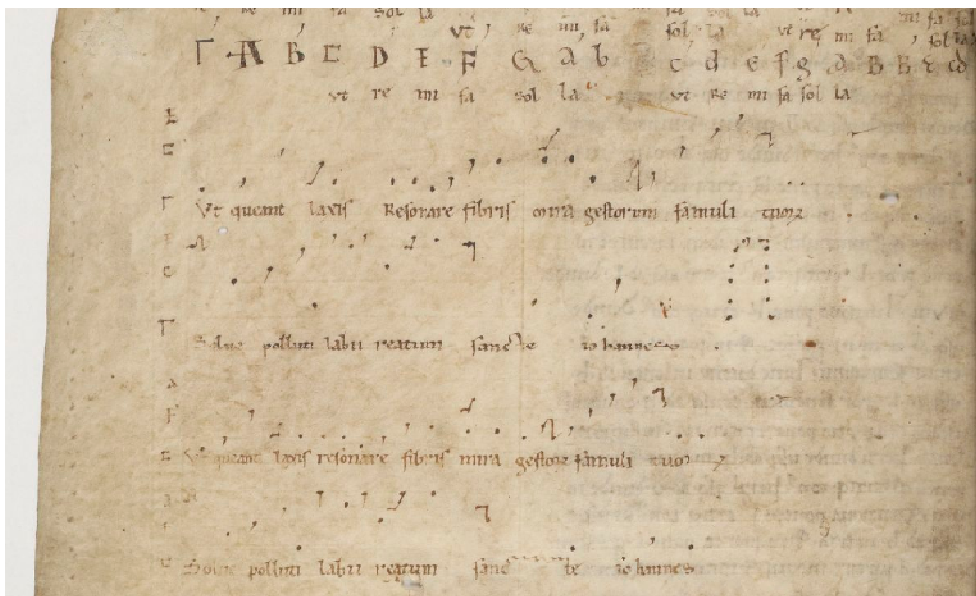 re mi fa sol la
ut re mi fa sol la ut re mi fa sol la
Γ A B C D E F G A b c d e f g a
ut re mi fa sol la ut re mi fa sol la
E
C
Γ Ut queant laxis Resonare fibris mira gestorum famuli tuoꝝ
C
Γ Solue polluti labii reatum sancte iohannes
A
F
queant laxis resonare fibris mira gestoꝝ famuli tuoꝝ
C Solue polluti labii reatum sancte iohannes